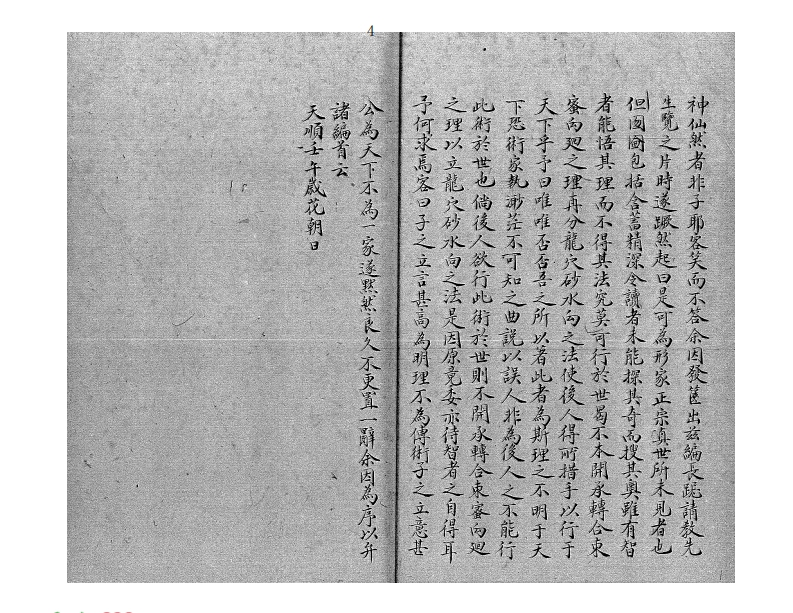 4
神仙然者非子耶客笑而不答余因發篋出玆編長跪請教先
生覽之片時遂蹶然起曰是可為形家正宗真世所未見者也
但圖圖包括含蓄精深令讀者未能探其奇而搜其奧雖有智
者能悟其理而不得其法究莫可行於世曷不本開承轉合東
蜜向廻之理再分龍穴砂水向之法使後人得所措手以行于
天下乎予曰唯唯否否吾之所以著此者為斯理之不明于天
下恐術家執渺茫不可知之曲説以誤人非為後人之不能行
此術於世也倘後人欲行此術於世則不開承轉合東蜜向廻
之理以立龍穴砂水向之法是因原竟委亦待智者之自得耳
予何求焉客曰子之立言甚高為明理不為傳術子之立意甚
公為天下不為一家遂默然良久不更置一辭余因為序以弁
諸編首云
天順壬午歲花朝日